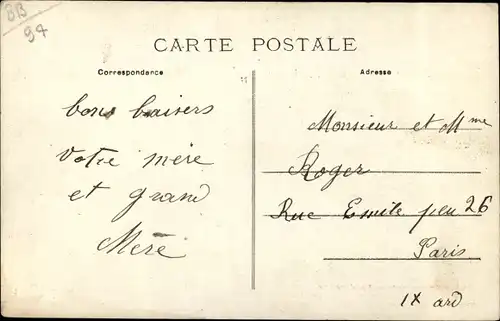 BB
94
CARTE POSTALE
Correspondance
bons baisers
votre mère
et grand
Mère
Adresse
Monsieur et Mme
Roger
Rue Emile peu 26
Paris
IX ard